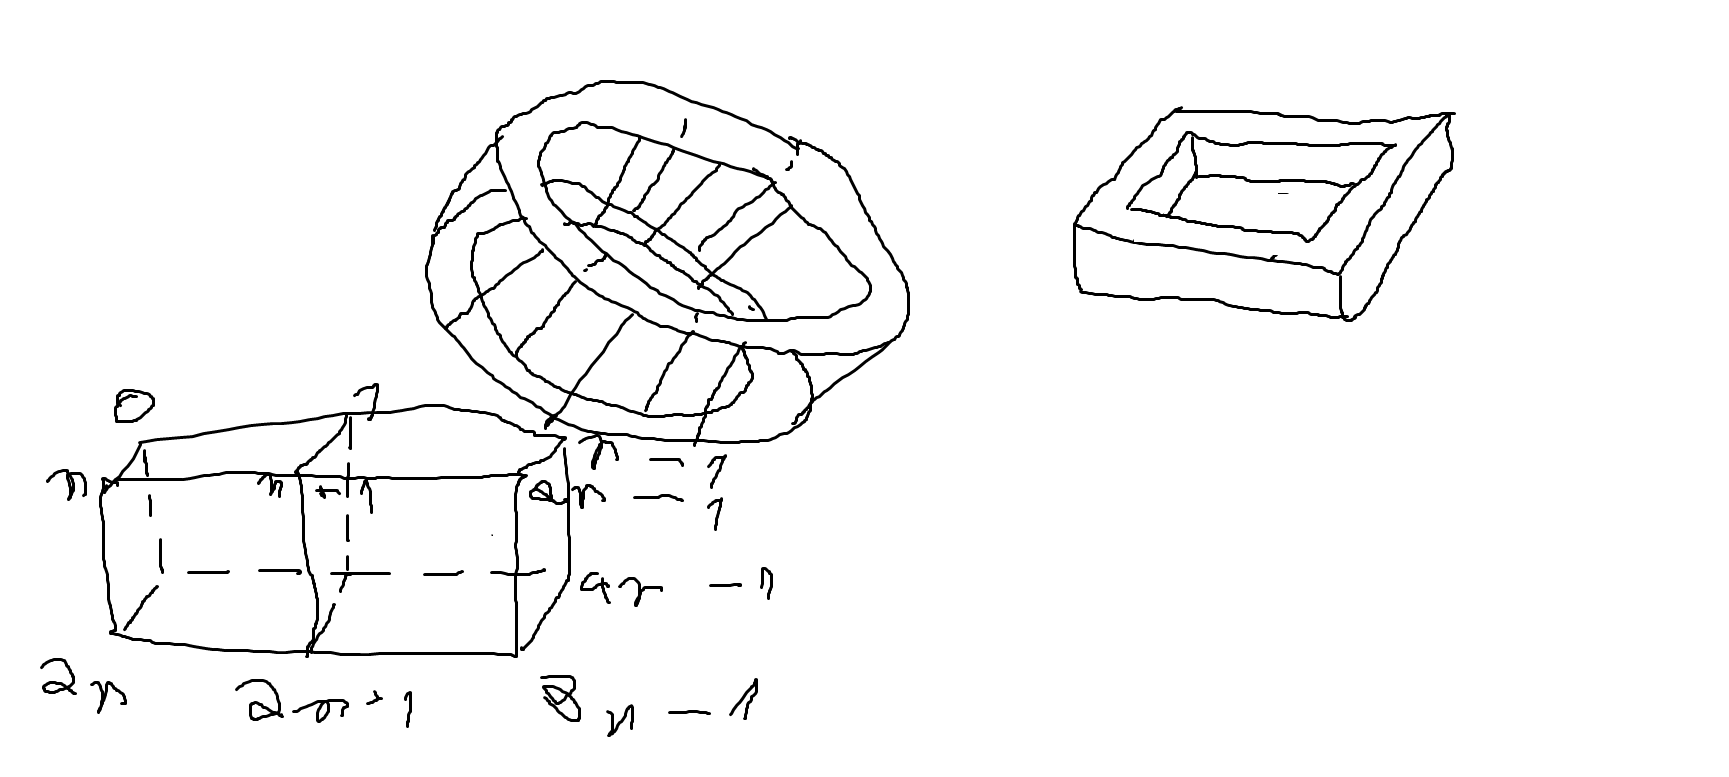 0 1 n-1
n n+1 2n-1
4n-1
2n 2n+1 3n-1